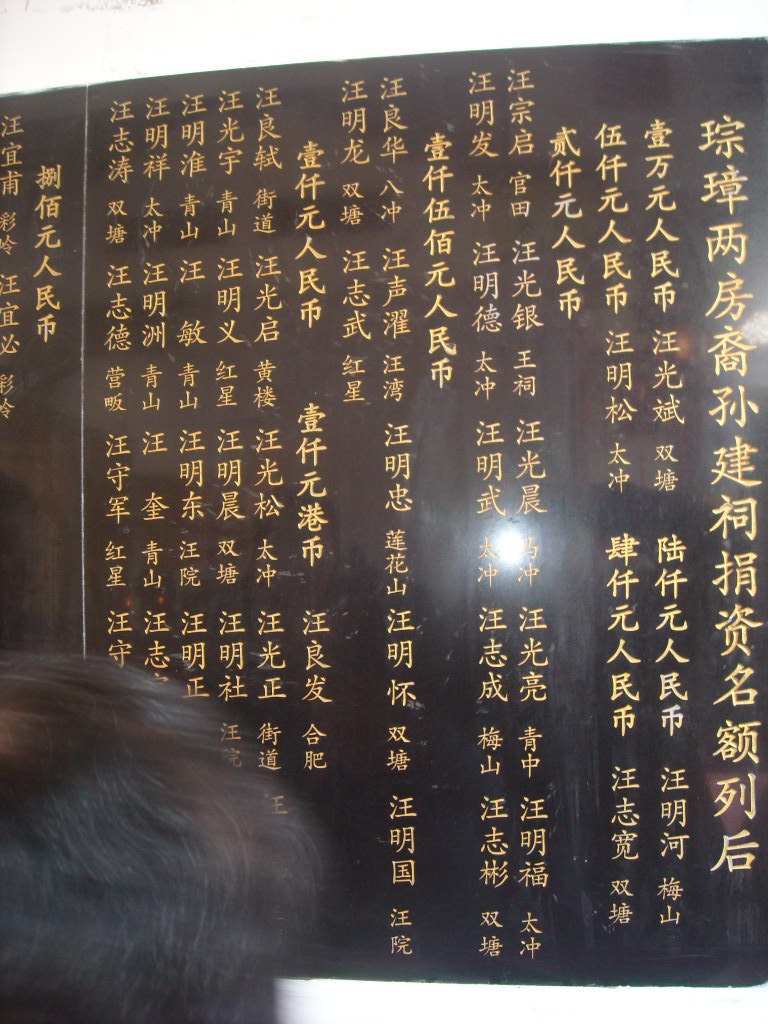 琮璋两房裔孙建祠捐资名额列后
壹万元人民币 汪光斌 双塘 陆仟元人民币 汪明河 梅山
伍仟元人民币 汪明松 太冲 肆仟元人民币 汪志宽 双塘
贰仟元人民币
汪宗启 官田 汪光银 王祠 汪光晨 冲 汪光亮 青中 汪明福 太冲
汪明发 太冲 汪明德 太冲 汪明武 太冲 汪志成 梅山 汪志彬 双塘
壹仟伍佰元人民币
汪良华 八冲 汪声濯 汪湾 汪明忠 莲花山 汪明怀 双塘 汪明国 汪院
汪明龙 双塘 汪志武 红星
壹仟元人民币 壹仟元港币 汪良发 合肥
汪良轼 街道 汪光启 黄楼 汪光松 太冲 汪光正 街道 汪
汪光宇 青山 汪明义 红星 汪明晨 双塘 汪明社 汪院
汪明淮 青山 汪敏 青山 汪明东 汪院 汪明正
汪明祥 太冲 汪明洲 青山 汪奎 青山 汪志
汪志涛 双塘 汪志德 营畈 汪守军 红星 汪守
捌佰元人民币
汪宜甫 彩岭 汪宜必 彩岭